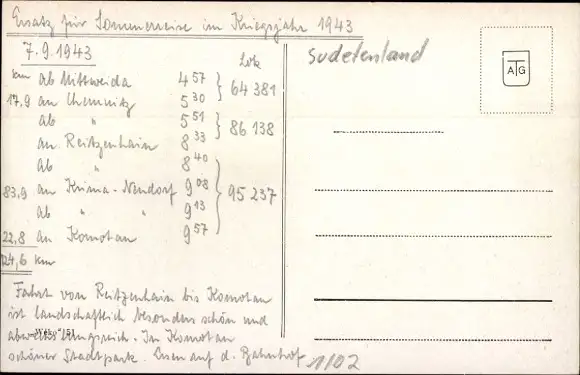 Ersatz für Sommerreise im Kriegsjahr 1943
7.9.1943 Lok
km ab Mittweida 4 57 } 64 381
17.9 an Chemnitz 5 30
ab " 5 51 } 86 138
an Reitzenhain 8 33
ab " 8 40
83,9 an Krima-Neudorf 9 08 } 95 237
ab " " 9 13
22,8 an Komotau 9 57
124,6 km
Fahrt von Reitzenhain bis Komotau
ist landschaftlich besonders schön und
abwechslungsreich. In Komotau
schöner Stadtpark. Essen auf d. Bahnhof
Sudetenland
ATG
1/02